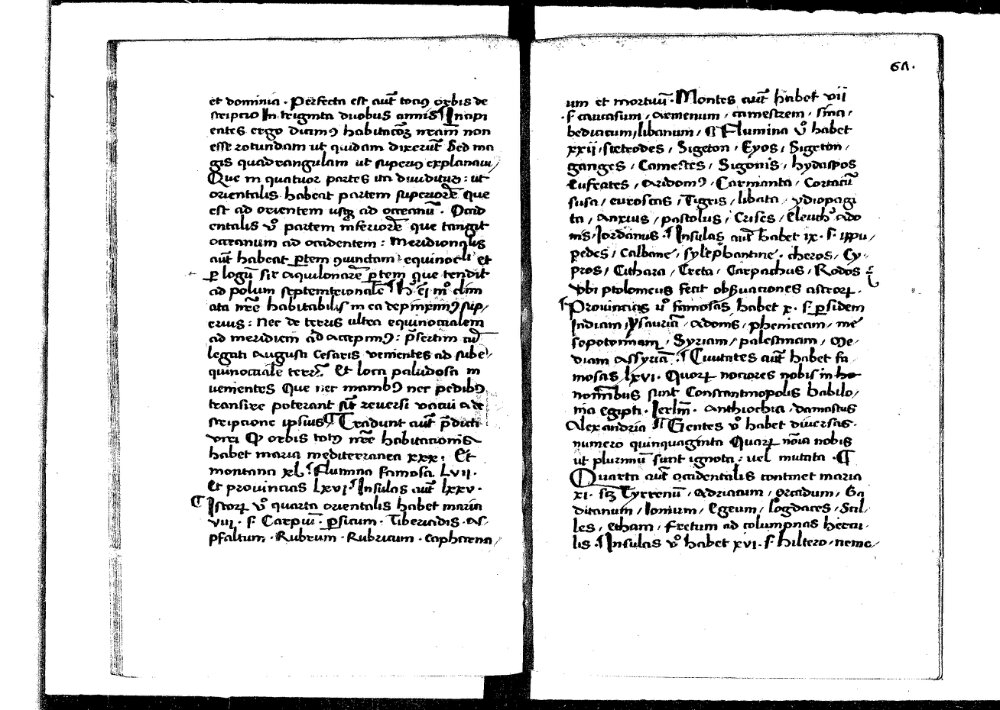 et dominia · Perfecta est aut̄ totiꝰ orbis de
scriptio In triginta duobus annis ¶ Incipi
entes ergo dicimꝰ habitacōeꝫ nr̄am non
esse rotundam ut quidam dixerūt Sed ma
gis quadrangulam ut superiꝰ explanavi
Que in quatuor partes ita dividitur : ut
orientalis habeat partem superiorē que
est ad orientem usqꝫ ad occeanū · Occid
entalis v̊ partem inferiorē que tangit
occeanum ad occidentem : Meridionalis
aut̄ habeat ꝑtem secundam equinoctii et
ꝑ logū sit Aquilonarē ꝑtem que tendit
ad polum septemtrionalē
ata nr̄e habitabilis
erius : nec de terris ultra equinoctialem
ad meridiem accepimꝰ : ꝓsertim cū
legati Augusti Cesaris venientes ad sube
quinoctiale terrē Et loca paludosa in
venientes Que nec manibꝰ nec pedibꝰ
transire poterant sūt reversi vacui a de
scriptione ipsius ¶ Tradunt aut̄ p̄dicti
viri Ꝙ orbis totꝰ nr̄e habitacionis
habet maria mediterranea xxx : Et
montana xl ¶ Flumina famosa LVII ·
Et provincias LXVI ¶ Insulas aut̄ lxxv ·
¶ Istorꝝ v̊ quarta orientalis habet maria
viii · s̄ Carpiū · ꝑsicum · Tiberiadis · As
pfaltum · Rubrum · Rubricum · Capharna
61 ·
um et mortuū · Montes aut̄ habet vii
· s̄ caucasum / armenum / camestrem / sina /
bediacum / libanum / ¶ Flumina v̊ habet
xxii / sceteodes / Sigeton / Eyos / Sigeton ·
ganges / Camestes / Sigonis / hydaspos
Eufrates / Aridomꝰ · Carmanta / Corracū
susa / euroscas / Tigris / libata / ydiopagi
ta / Anxius / pactolus / Crises / Eleuchꝰ ado
nis · Iordanus ¶ Insulas aut̄ habet ix · s̄ ippu /
pedes / Calbane / sylephantine · cheros / Cy ·
pros / Cithara / Creta / Carpachus / Rodos
Vbi ptolomeus fecit obẜuaciones astrorꝝ ·
¶ Provincias v̊ famosas habet x · s̄ ꝑsidem
Indiam / ysauriā / Adonis / pheniceam / me
sopotomiam / Syriam / palestinam / Me ·
diam Assyriā ¶ Civitates aut̄ habet fa
mosas lxvi · Quorꝝ nociores nobis in ho
nominibus sunt Constantinopolis Babilo ·
nia egipti · Ierl̄m · Anthiochia · damascus
Alexandria ¶ Gentes v̊ habet diversas ·
numero quinquaginta Quarꝝ nōia nobis
ut plurimū sunt ignota : vel mutata · ¶
Quarta aut̄ occidentalis continet maria
xi · sꝫ Tyrrenū / Adriacum / orcadum / Ga
ditanum / Ionium / Egeum / Logdaces / Scil ·
les / Etham / Fretum ad columpnas hercu ·
lis ¶ Insulas v̊ habet xvi · s̄ hiltero · nemo /